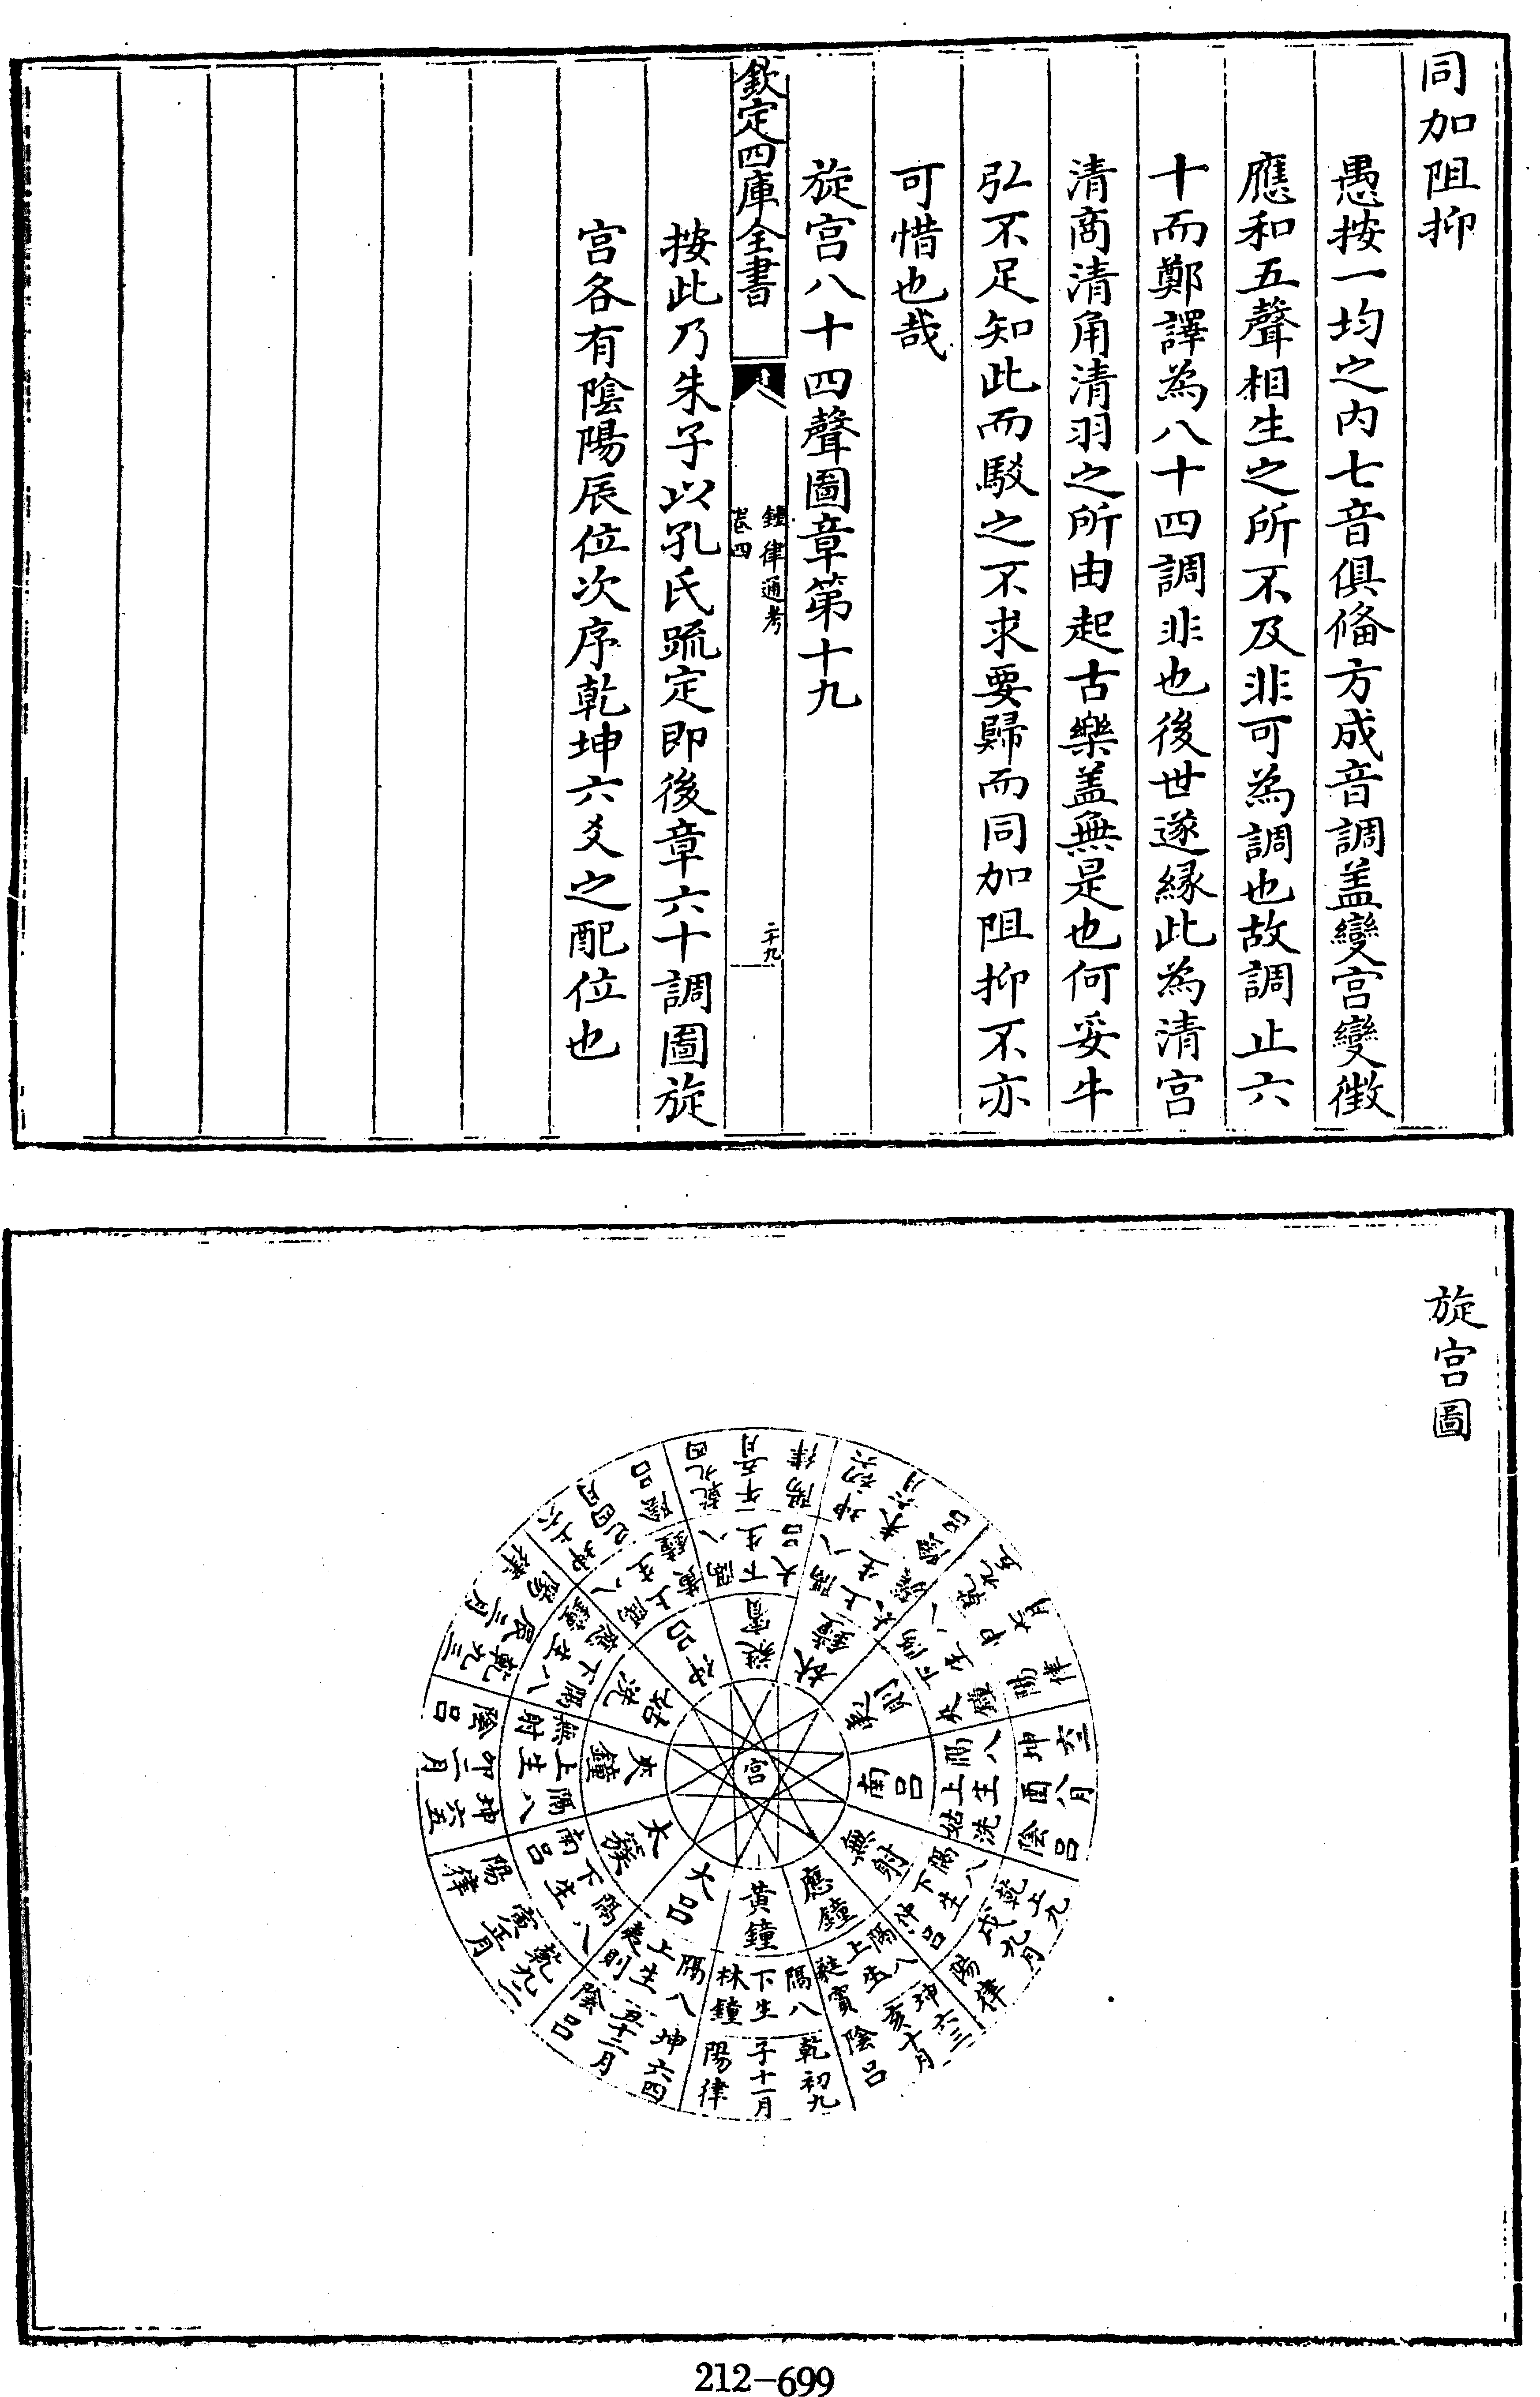 同加阻抑
愚按一均之内七音俱俻方成音調盖變宫變徴
應和五聲相生之所不及非可為調也故調止六
十而鄭譯為八十四調非也後世遂縁此為清宫
清商清角清羽之所由起古樂盖無是也何妥牛
弘不足知此而駁之不求要歸而同加阻抑不亦
可惜也哉
旋宫八十四聲圖章第十九
欽定四庫全書
鍾律通考
卷四
二十九
按此乃朱子以孔氏疏定即後章六十調圖旋
宫各有陰陽辰位次序乾坤六爻之配位也
旋宫圖
宫
黄鐘
隔八
下生
林鐘
乾初九
子十一月
陽律
大吕
隔八
上生
夷則
坤六四
丑十二月
陰吕
太簇
隔八
下生
南吕
乾九二
寅正月
陽律
夾鐘
隔八
上生
無射
坤六五
卯二月
陰吕
姑洗
隔八
下生
應鐘
乾九三
辰三月
陽律
仲吕
隔八
上生
黄鐘
坤上六
巳四月
陰吕
蕤賓
隔八
下生
大吕
乾九四
午五月
陽律
林鐘
隔八
上生
太簇
坤初六
未六月
陰吕
夷則
隔八
下生
夾鐘
乾九五
申七月
陽律
南吕
隔八
上生
姑洗
坤六二
酉八月
陰吕
無射
隔八
下生
仲吕
乾上九
戌九月
陽律
應鐘
隔八
上生
蕤賓
坤六三
亥十月
陰吕
212-699